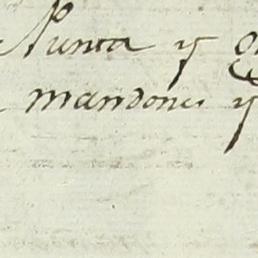 Nunta y
mandones y